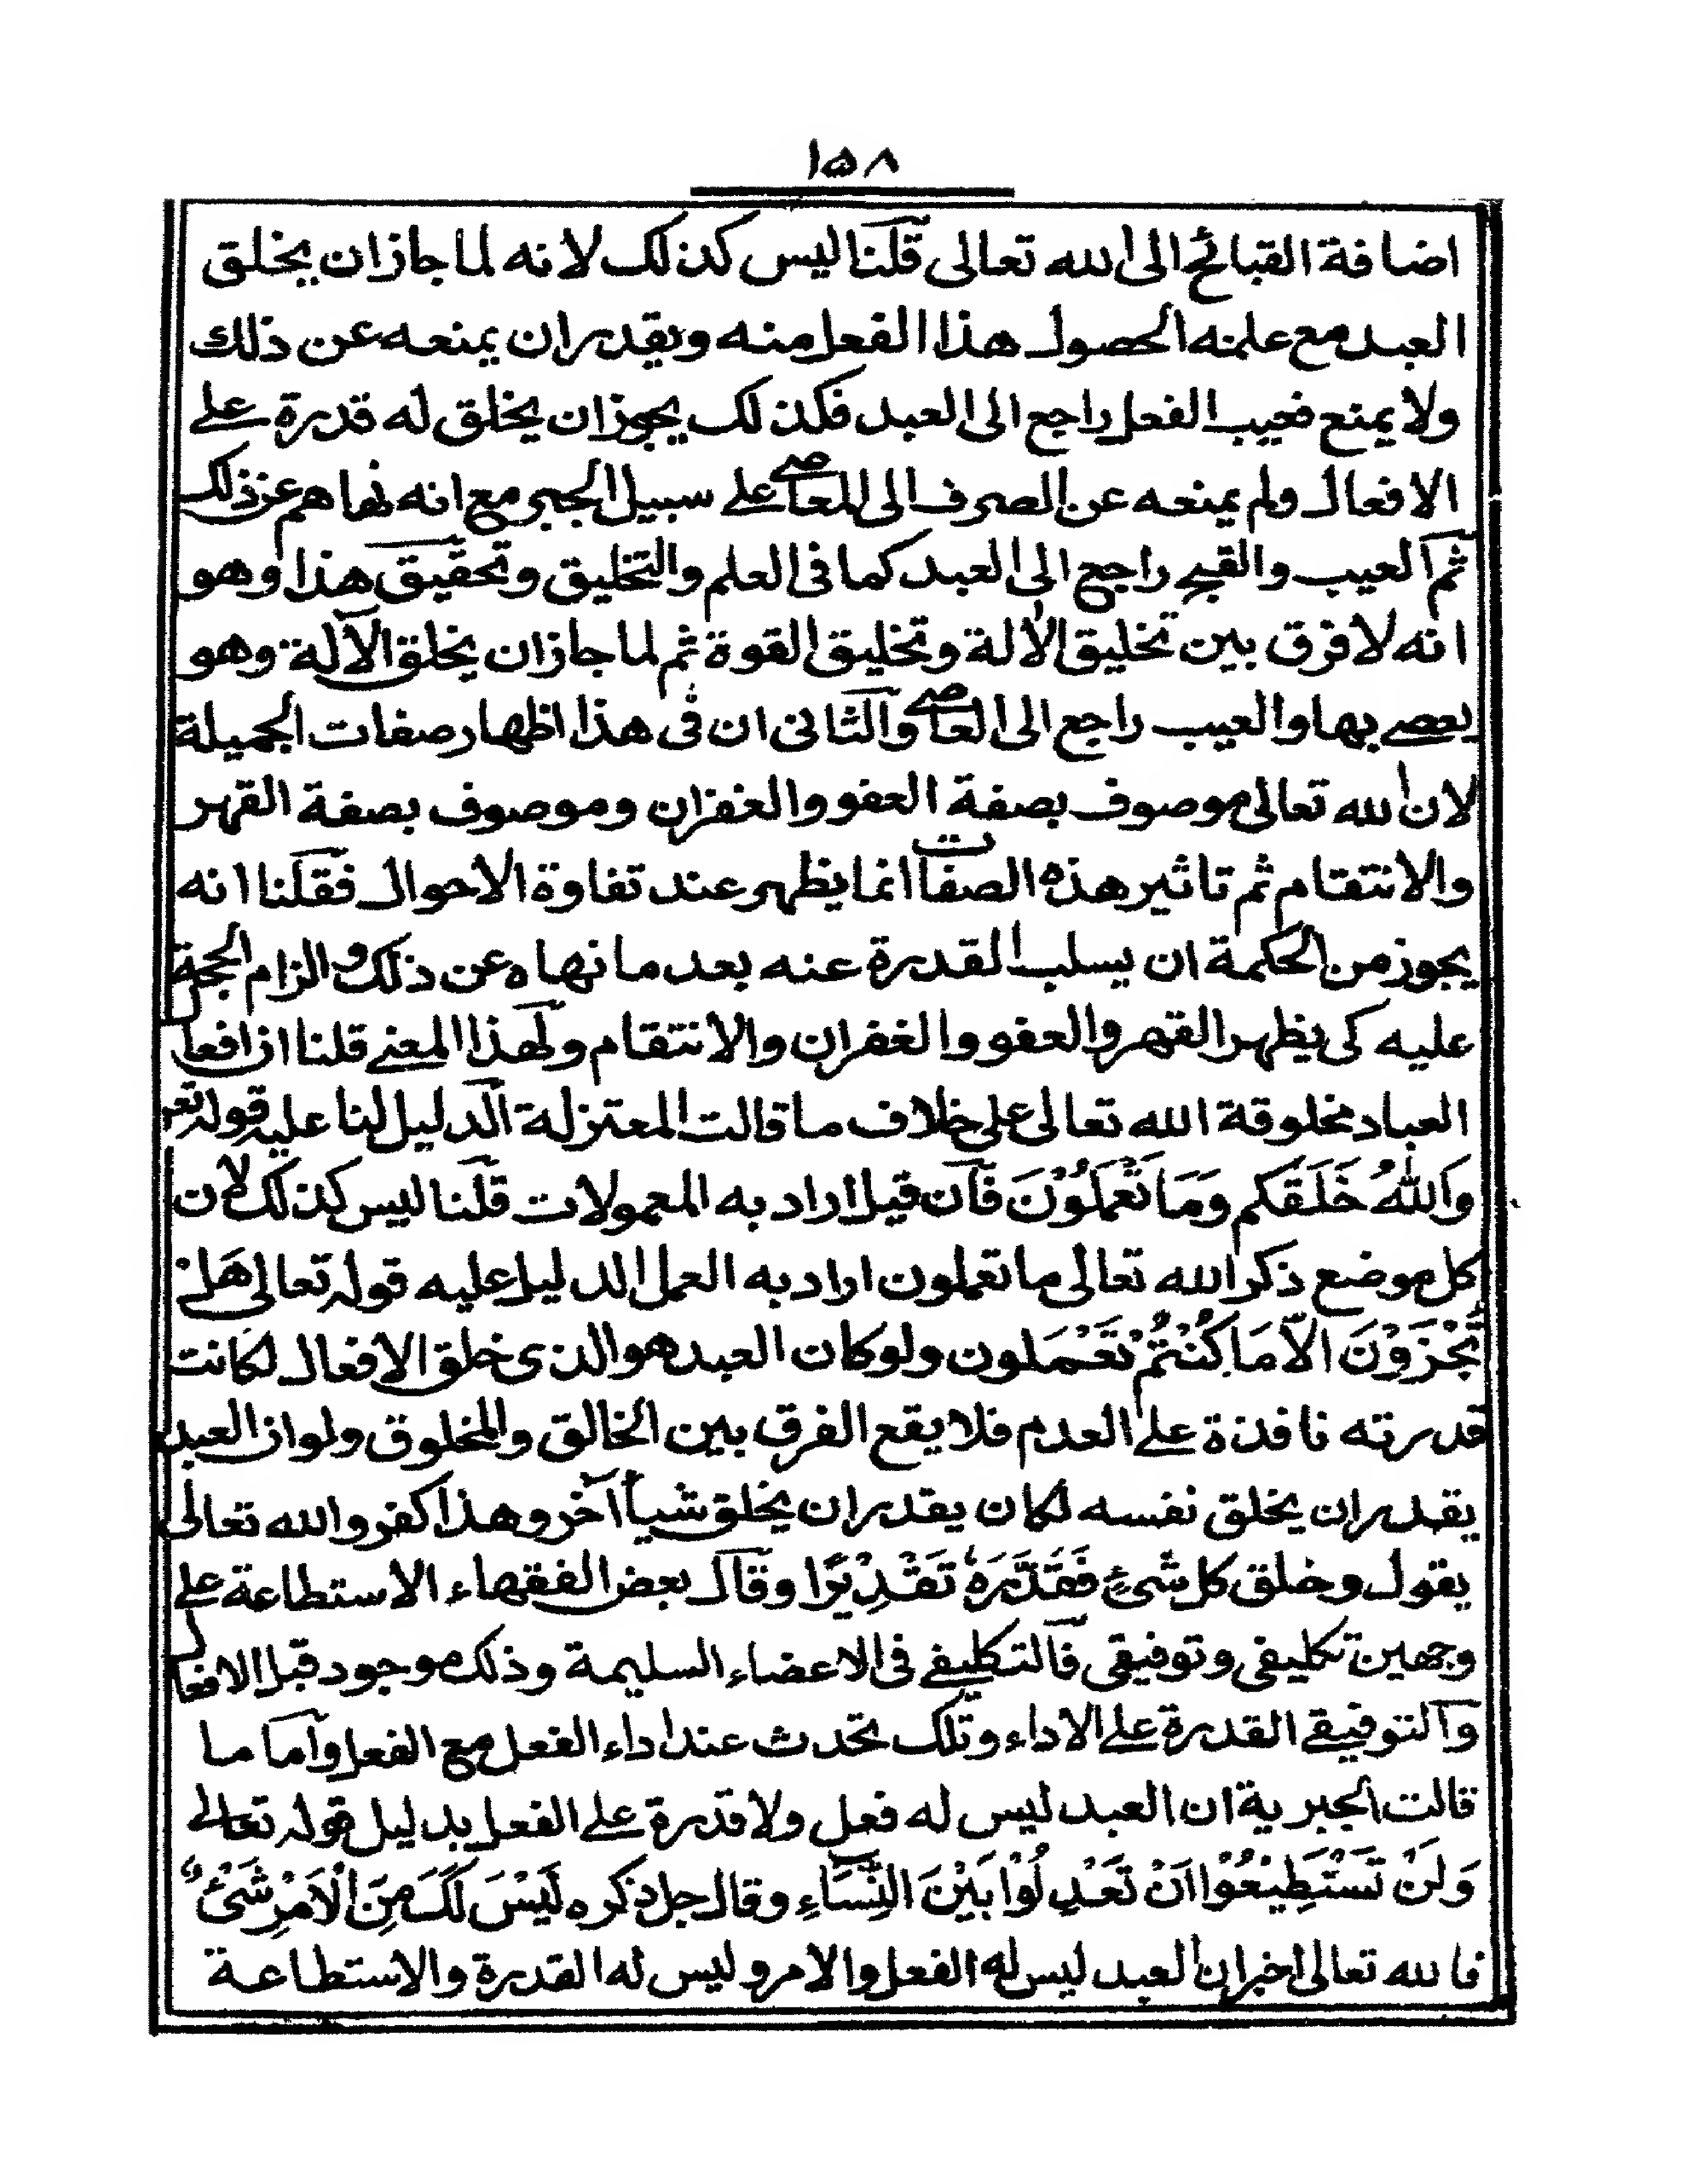 ١٥٨
اضافة القبائح الى الله تعالى قلنا ليس كذلك لانه لما جاز ان يخلق
العبد مع علمنه الحصول هذا الفعل منه ويقدر ان يمنعه عن ذلك
ولا يمنع فعيب الفعل راجع الى العبد فكذلك يجوز ان يخلق له قدرة على
الافعال ولم يمنعه عن الصرف الى المعاصى على سبيل الجبر مع انه نهاهم عن ذلك
ثم العيب والقبح راجع الى العبد كما فى العلم والتخليق وتحقيق هذا وهو
انه لا فرق بين تخليق الالة وتخليق القوة ثم لما جاز ان يخلق الآلة وهو
يعصى بها والعيب راجع الى العاصى والثانى ان فى هذا اظهار صفات الجميلة
لان الله تعالى موصوف بصفة العفو والغفران وموصوف بصفة القهر
والانتقام ثم تاثير هذه الصفات انما يظهر عند تفاوة الاحوال فقلنا انه
يجوز من الحكمة ان يسلب القدرة عنه بعد ما نهاه عن ذلك والزام الحجة
عليه كى يظهر القهر والعفو والغفران والانتقام ولهذا المعنى قلنا ان افعال
العباد مخلوقة الله تعالى على خلاف ما قالت المعتزلة الدليل لنا عليه قوله تعم
وَاللّٰهُ خَلَقَكم وَمَا تَعْمَلُوْنَ فان قيل اراد به المعمولات قلنا ليس كذلك لان
كل موضع ذكر الله تعالى ما تعملون اراد به العمل الدليل عليه قوله تعالى هَلْ
تُجْزَوْنَ الاّ مَا كُنْتُمْ تَعْمَلون ولو كان العبد هو الذى خلق الافعال لكانت
قدرته نافذة على العدم فلا يقع الفرق بين الخالق والمخلوق ولو ان العبد
يقدر ان يخلق نفسه لكان يقدر ان يخلق شيأ آخر وهذا كفر والله تعالى
يقول وخلق كل شىءٍ فَقَدَّرَهٗ تَقْدِيْرًا وقال بعض الفقهاء الاستطاعة على
وجهين تكليفى وتوفيقى فالتكليفى فى الاعضاء السليمة وذلك موجود قبل الافعال
والتوفيقى القدرة على الاداء وتلك تحدث عند اداء الفعل مع الفعل واما ما
قالت الجبرية ان العبد ليس له فعل ولا قدرة على الفعل بدليل قوله تعالى
وَلَنْ تَسْتَطِيْعُوْا اَنْ تَعْدِلُوْا بَيْنَ النِّسَاءِ وقال جل ذكره لَيْسَ لَكَ مِنَ الْاَمْرِ شَىْءٌ
فالله تعالى اخبر ان العبد ليس له الفعل والامر وليس له القدرة والاستطاعة